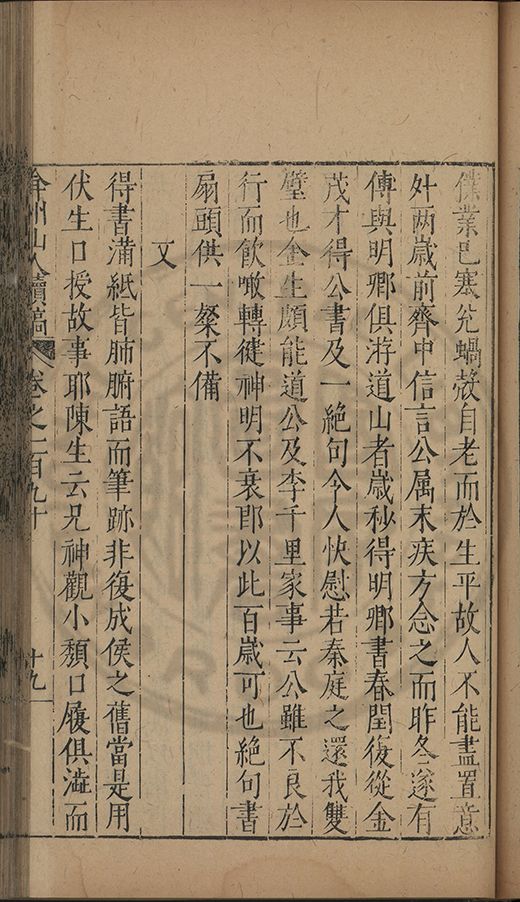 僕業已塞兊蝸殻自老而於生平故人不能盡置意
外两歲前齊中信言公属末疾方念之而昨冬遂有
傳與明卿俱游道山者歲秒得明卿書春閏復從金
茂才得公書及一絕句令人快慰若秦庭之還我雙
璧也金生頗能道公及李千里家事云公雖不良於
行而飲噉轉健神明不衰即以此百歲可也絕句書
扇頭供一粲不備
又
得書滿紙皆肺腑語而筆跡非復成侯之舊當是用
伏生口授故事耶陳生云兄神觀小頹口履俱澁而
弇州山人續稿 卷之一百九十 十九